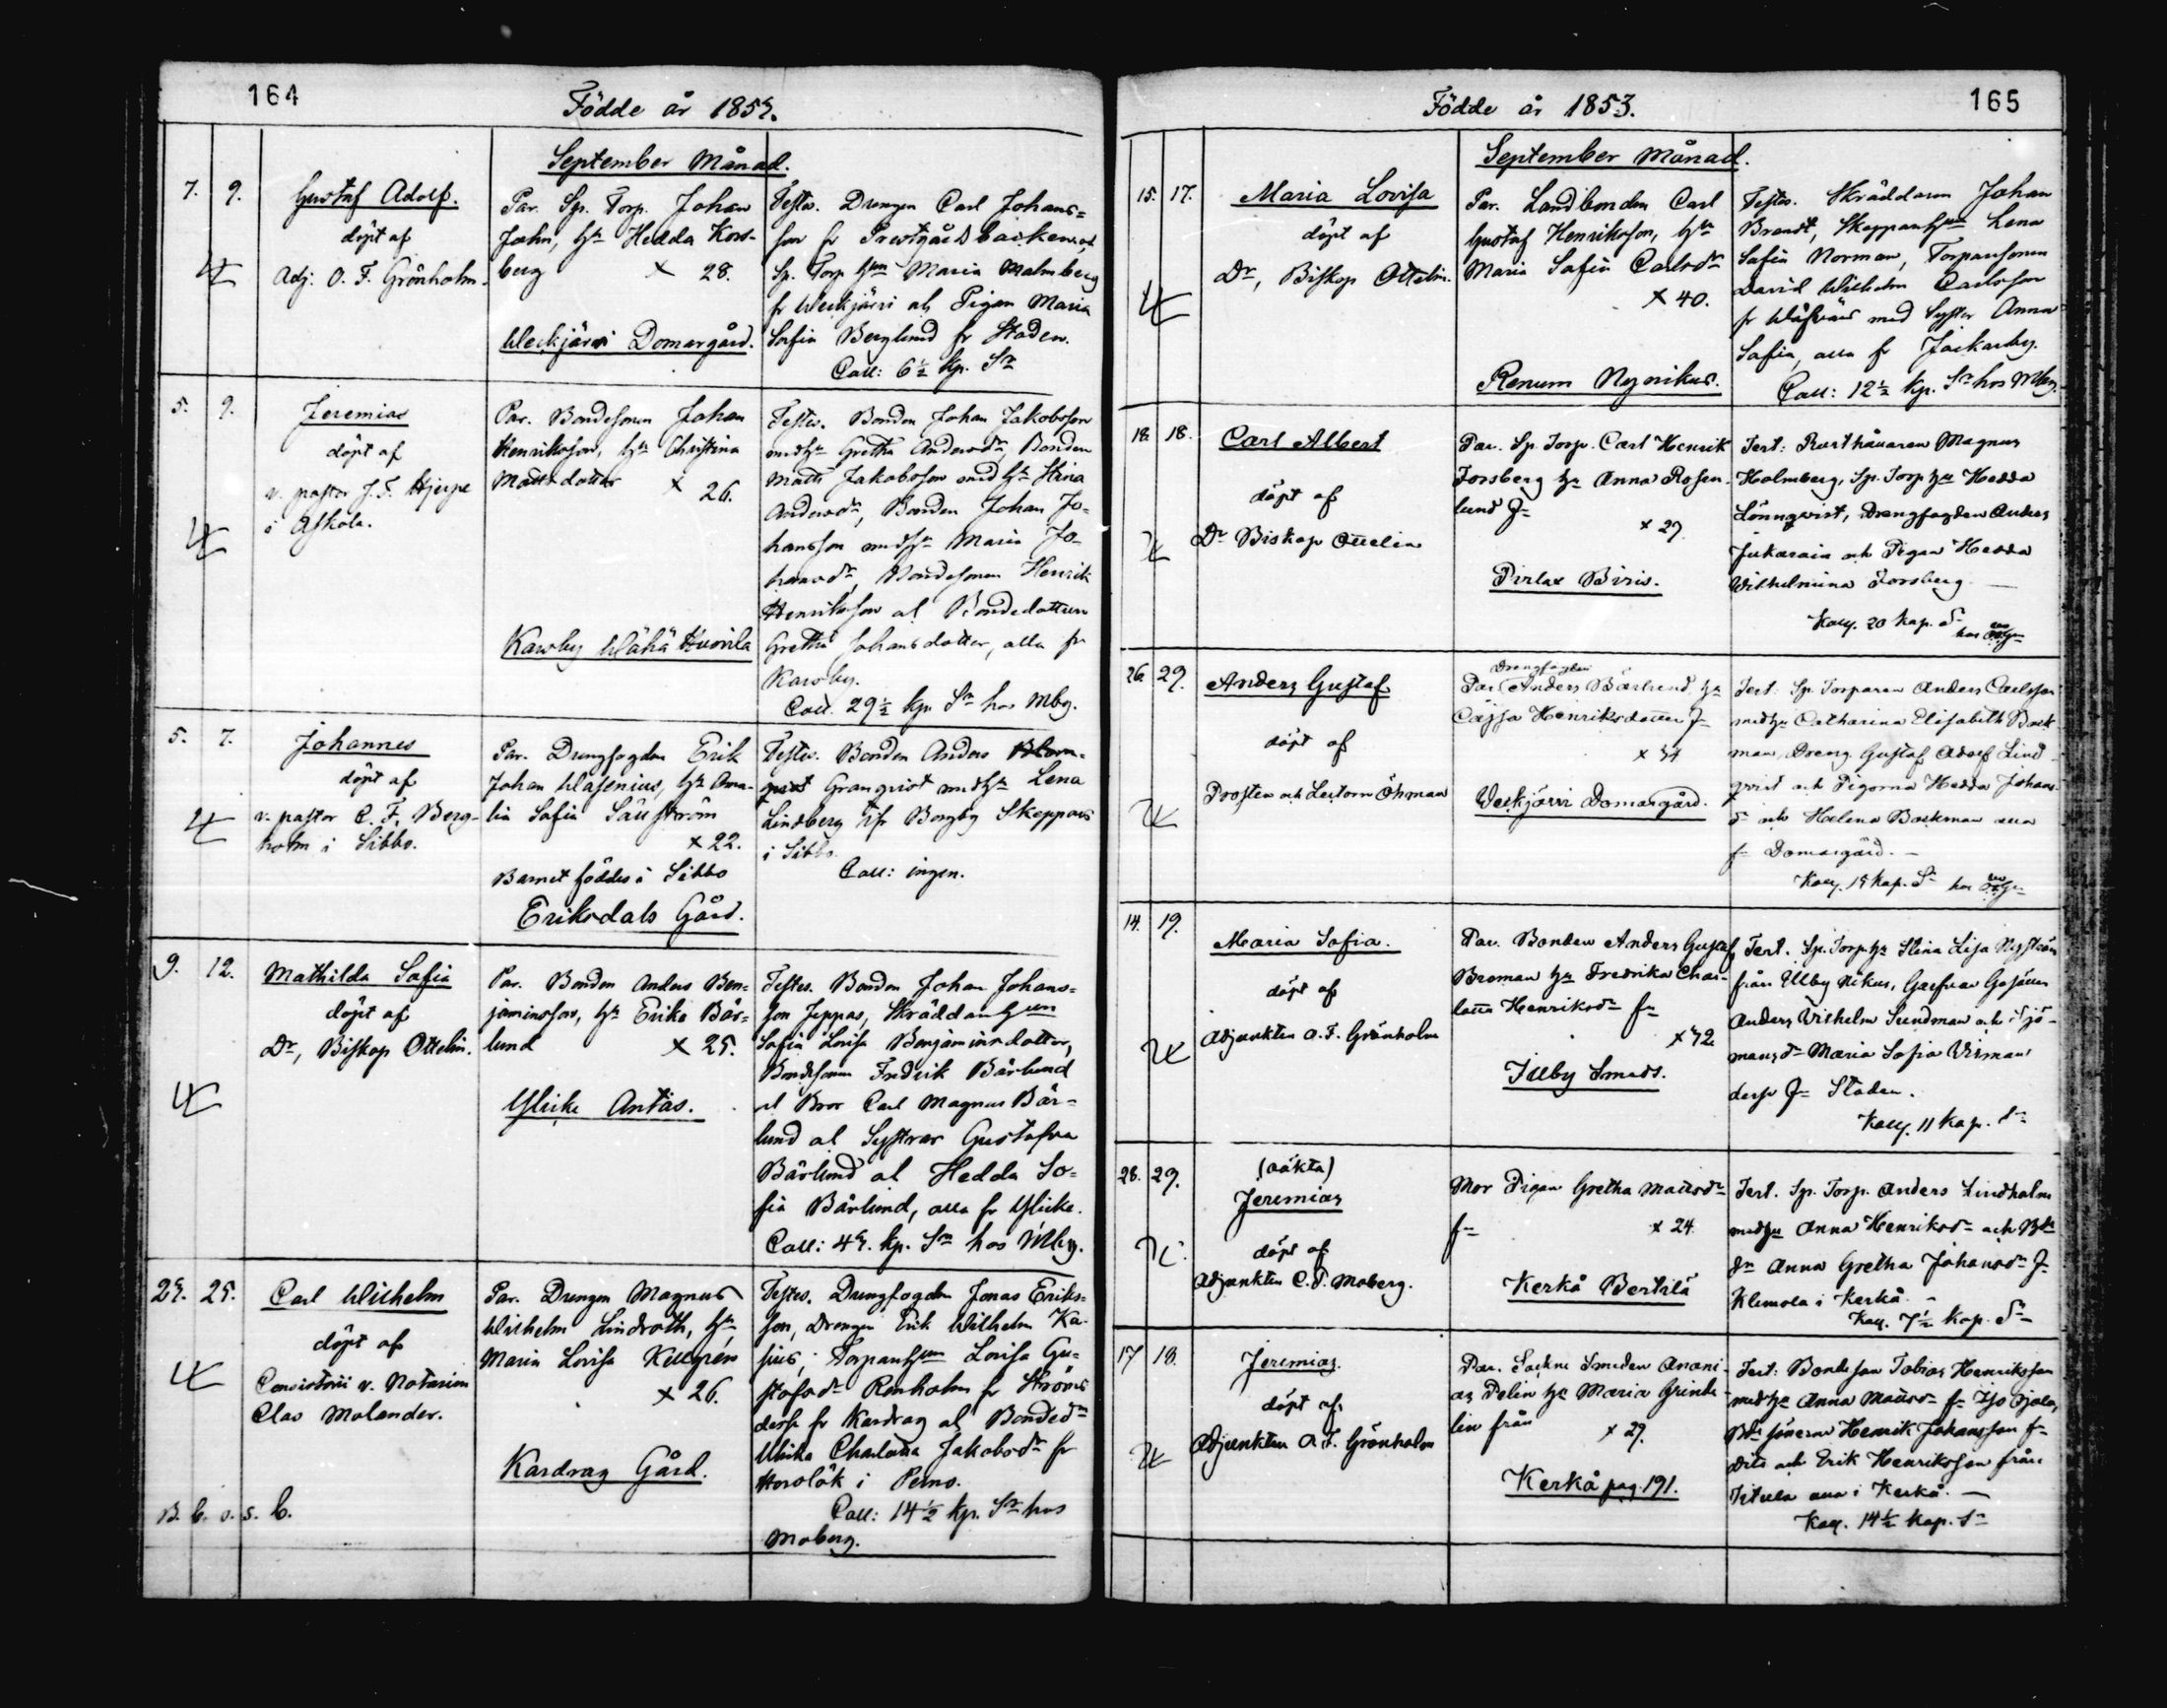 164
Födde år 1853.
September Månad.
7. 9.
Gustaf Adolf.
döpt af
Adj. O. F. Grönholm.
Par. Sp. Torp. Johan
John, hu Hedda Kors-
berg × 28.
Weckjärvi Domargård.
Testes. Drengen Carl Johans=
son fr Prestgårdsbacken, al
Sp. Torp hun Maria Malmberg
fr Weckjärvi al Pigan Maria
Sofia Berglund fr Staden.
Coll: 6½ kp. Sr
5. 9.
Jeremias
döpt af
v. pastor J. F. Hjerpe
i Askola.
Par. Bondesonen Johan
Henriksson, hu Christina
Mattsdotter × 26.
Karsby Wähä Huovila
Testes. Bonden Johan Jakobsson
med hu Gretha Andersdr, Bonden
Matts Jakobsson med hu Stina
Andersdr, Bonden Johan Jo=
hansson med hu Maria Jo=
hansdr, Bondesonen Henrik
Henriksson al Bondedottern
Gretha Johansdotter, alla fr
Karsby.
Coll. 29½ kp. Sr hos Mbg.
5. 7.
Johannes
döpt af
v. pastor C. F. Berg-
holm i Sibbo.
Par. Drengfogden Erik
Johan Wasenius, hu Ama-
lia Sofia Säfström
× 22.
Barnet föddes i Sibbo
Eriksdals Gård.
Testes. Bonden Anders Blom-
qvist Granqvist med hu Lena
Lindberg fr Borgby Skeppars
i Sibbo.
Coll: ingen.
9. 12.
Mathilda Sofia
döpt af
Dr, Biskop Ottelin.
Par. Bonden Anders Ben=
jaminsson, hu Erika Bär=
lund × 25.
Ylicke Antas.
Testes. Bonden Johan Johans=
son Jeppas, Skräddarhun
Sofia Lovisa Benjaminsdotter,
Bondesonen Fredrik Bärlund
al Bror Carl Magnus Bär=
lund al Systrar Gustafva
Bärlund al Hedda So=
fia Bärlund, alla fr Ylicke.
kp. Sr hos Mbg.
25. 25.
Carl Wilhelm
döpt af
Consistorii v. Notarien
Clas Molander.
Par. Drengen Magnus
Wilhelm Lindroth, hu,
Maria Lovisa Kellgren
× 26.
Kardrag Gård.
Testes. Drengfogden Jonas Eriks=
son, Drengen Erik Wilhelm Ka-
sius, Torparehun Lovisa Gu=
stafsdr Renholm fr Ströms
dessa fr Kardrag al Bondedr
Ulrika Charlotta Jakobsdr fr
i Perno.
Coll: 14½ kp. Sr hos
Moberg.
165
Födde år 1853.
September Månad.
15. 17.
Maria Lovisa
döpt af
Dr, Biskop Ottelin.
Par. Landbonden Carl
Gustaf Henriksson, hu
Maria Sofia Carlsdr
× 40.
Renum Nygrikus.
Testes. Skräddaren Johan
Brandt, Skepparehun Lena
Sofia Norman, Torparsonen
David Wilhelm Carlsson
fr med Syster Anna
Sofia, alla fr Jackarby.
Coll: 12½ kp. Sr hos Mbg.
18. 18.
Carl Albert
döpt af
Dr Biskop Ottelin
Par. Sp. Torp. Carl Henrik
Forsberg hu Anna Rosen-
lund fr
× 27.
Pirlax Biris.
Test: Rusthållaren Magnus
Holmberg, Sp. Torp hu Hedda
Lönnqvist, Drengfogden Anders
Jukarain och Pigan Hedda
Wilhelmina Forsberg
Koll. 20 kap. Sr
26. 29.
Anders Gustaf
döpt af
Prosten och Lectorn Öhman
Drengfogden
Par. Anders Bärlund hu
Cajsa Henriksdotter fr
× 34
Veckjärvi Domargård.
Test: Sp. Torparen Anders Carlsson
med hu Catharina Elisabeth Back-
man, Dreng. Gustaf Adolf Lind-
qvist och Pigorna Hedda Johans-
dr och Helena Backman alla
fr Domargård.
14. 19.
Maria Sofia.
döpt af
Adjunkten O. F. Grönholm
Par. Bonden Anders Gustaf
Broman hu Fredrika Char-
lotta Henriksdr fr
× 42
Illby Smeds.
Test. Sp. Torp. hu Stina Lisa Nyström
från Illby Nikus, Garfvare Gesällen
Anders Wilhelm Sundman och Sjö-
mansdr Maria Sofia Wiman
desse fr Staden.
Koll. 11 kap. Sr
28. 29.
(oäkta)
Jeremias
döpt af
Adjunkten C. F. Moberg.
Mor Pigan Gretha Mattsdr
fr × 24
Kerkå Bertilä
Test. Sp. Torp. Anders Lindholm
med hu Anna Henriksdr och Bde
dr Anna Gretha Johansdr fr
Klemola i Kerkå.
Koll. 7½ kap. Sr
17 18.
Jeremias.
döpt af
Adjunkten O. F. Grönholm
Par. Sockne Smeden Anani-
as Pelin hu Maria Grinde-
lin från
× 29.
Kerkå pag. 191.
Test: Bondeson Tobias Henriksson
med hu Anna Mattsdr fr
Bde sönerne Henrik Johansson fr
Dito och Erik Henriksson från
alla i Kerkå.
Koll. 14½ kap. Sr